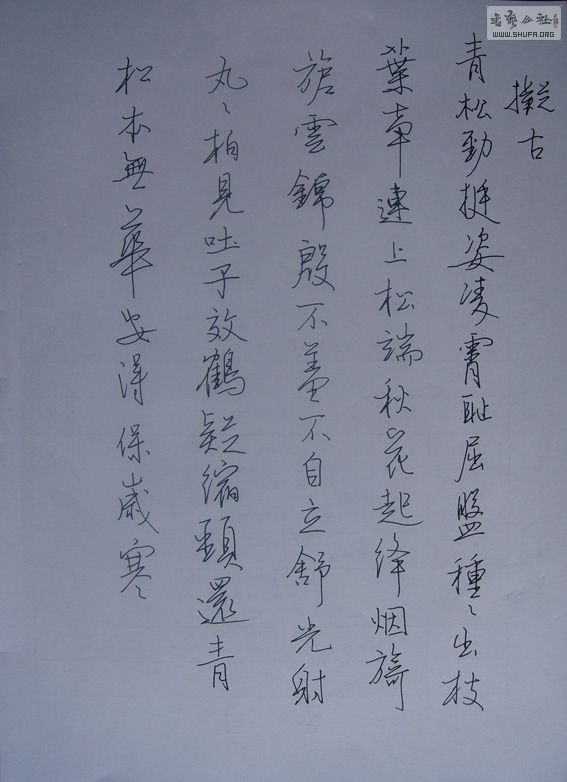 擬古
青松勁挺姿凌霄耻屈盤種〻出枝
葉牽連上松端秋花起绛烟旖
旎雲錦殷不羞不自立舒光射
丸〻柏見吐子效鶴疑縮頸還青
松本無華安得保歲寒
書藝公社
WWW.SHUFA.ORG